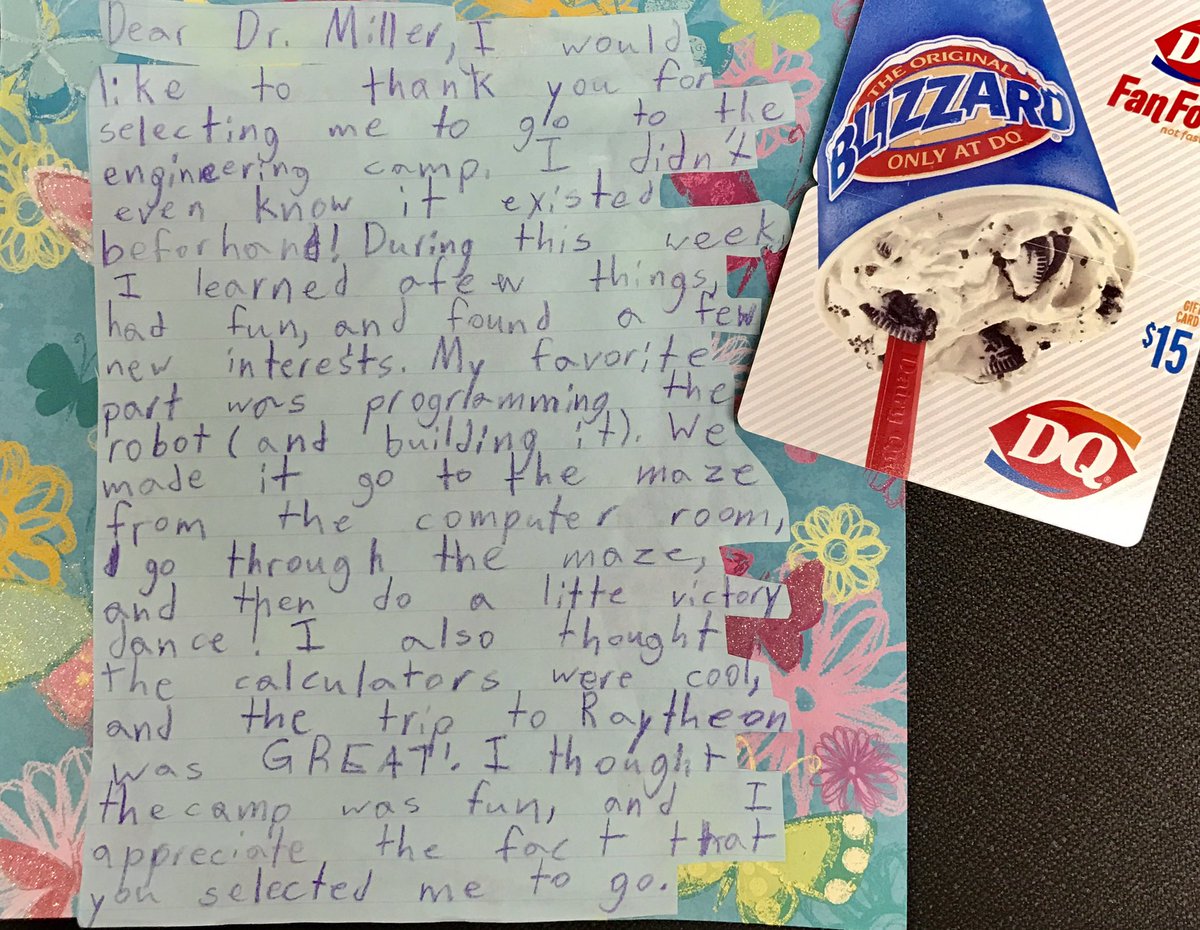 Dear Dr. Miller, I would
like to thank you for
selecting me to go to the
engineering camp. I didn't
even know it existed
beforhand! During this week,
I learned afew things,
had fun, and found a few
new interests. My favorite
part was progrmming the
robot (and building it). We
made it go to the maze
from the computer room,
go through the maze,
and then do a litte victory
dance! I also thought
the calculators were cool,
and the trip to Raytheon
was GREAT! I thought
the camp was fun, and I
appreciate the fact that
you selected me to go.
THE ORIGINAL
BLIZZARD®
ONLY AT DQ
FanFo
not fas
GIFT
CARD
$15
DQ®